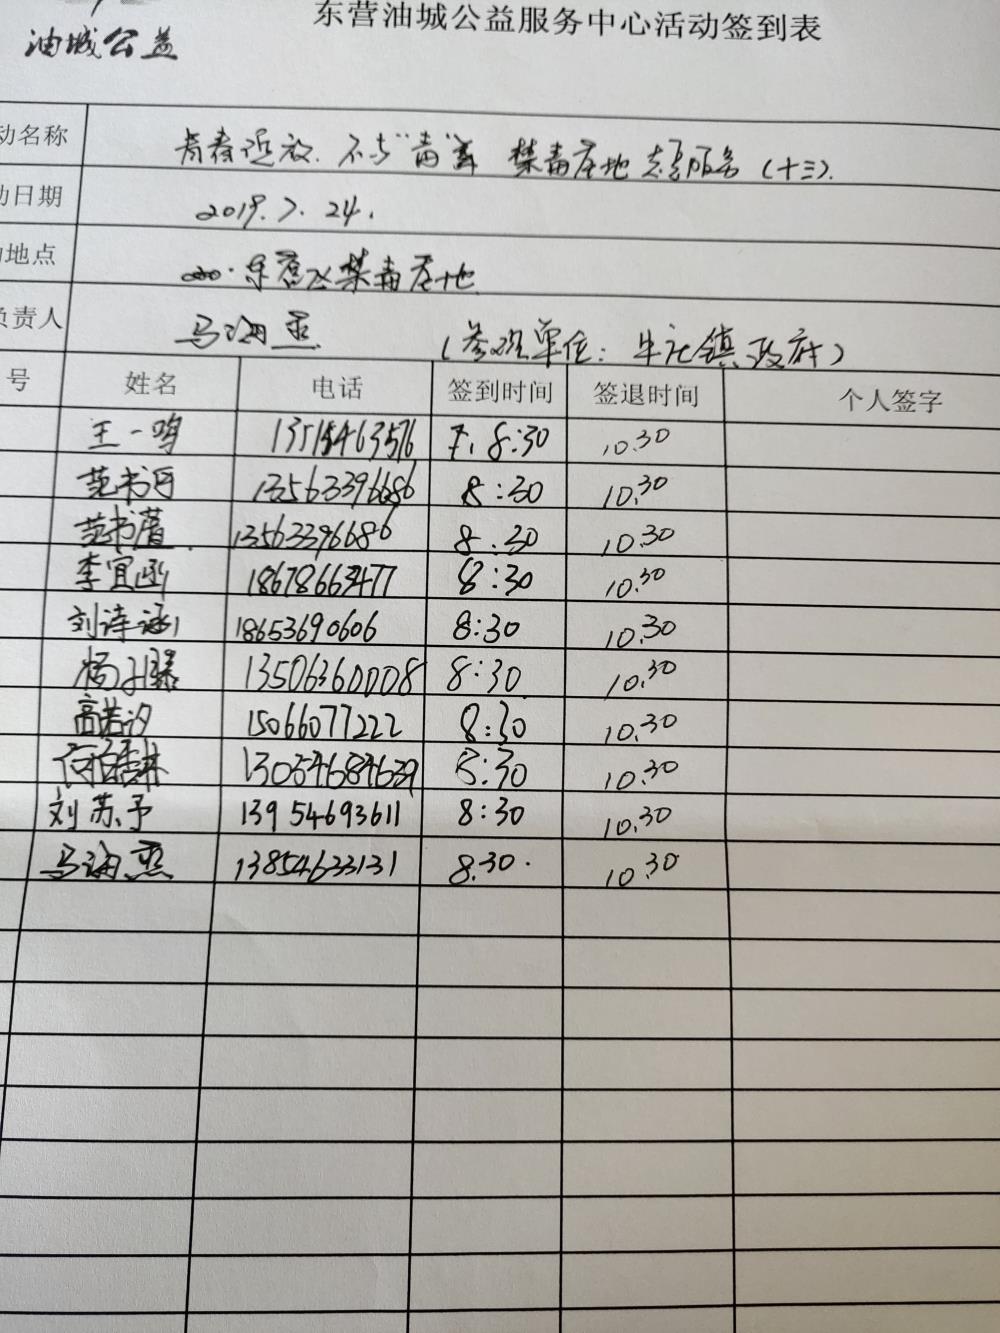 东营油城公益服务中心活动签到表
油城公益
动名称 青春绽放.不与"毒"舞 禁毒基地志愿服务(十三).
动日期 2019.7.24.
地点 东营区禁毒基地
负责人 马海燕 (参观单位:牛庄镇政府)
号 姓名 电话 签到时间 签退时间 个人签字
王一鸣 8:30 10.30
范书丹 13563396686 8:30 10.30
范书蕾 13563396686 8.30 10.30
李宜函 18678663477 8:30 10.30
刘诗涵 18653690606 8:30 10.30
杨子臻 13506360008 8:30 10.30
高若汐 15066077222 8:30 10.30
13054684639 8:30 10.30
刘苏予 13954693611 8:30 10.30
马海燕 13854633131 8.30. 10.30